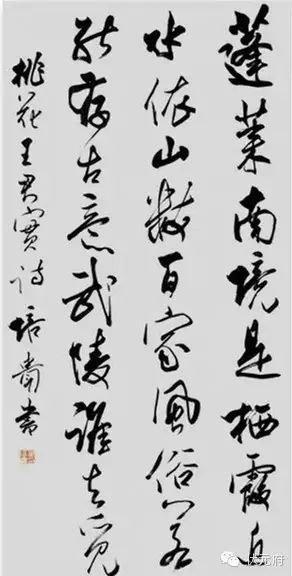 蓬莱南境是栖霞负
水依山数百家风俗若
能存古意武陵谁去觅
桃花 王君實诗 培 书
伏元府